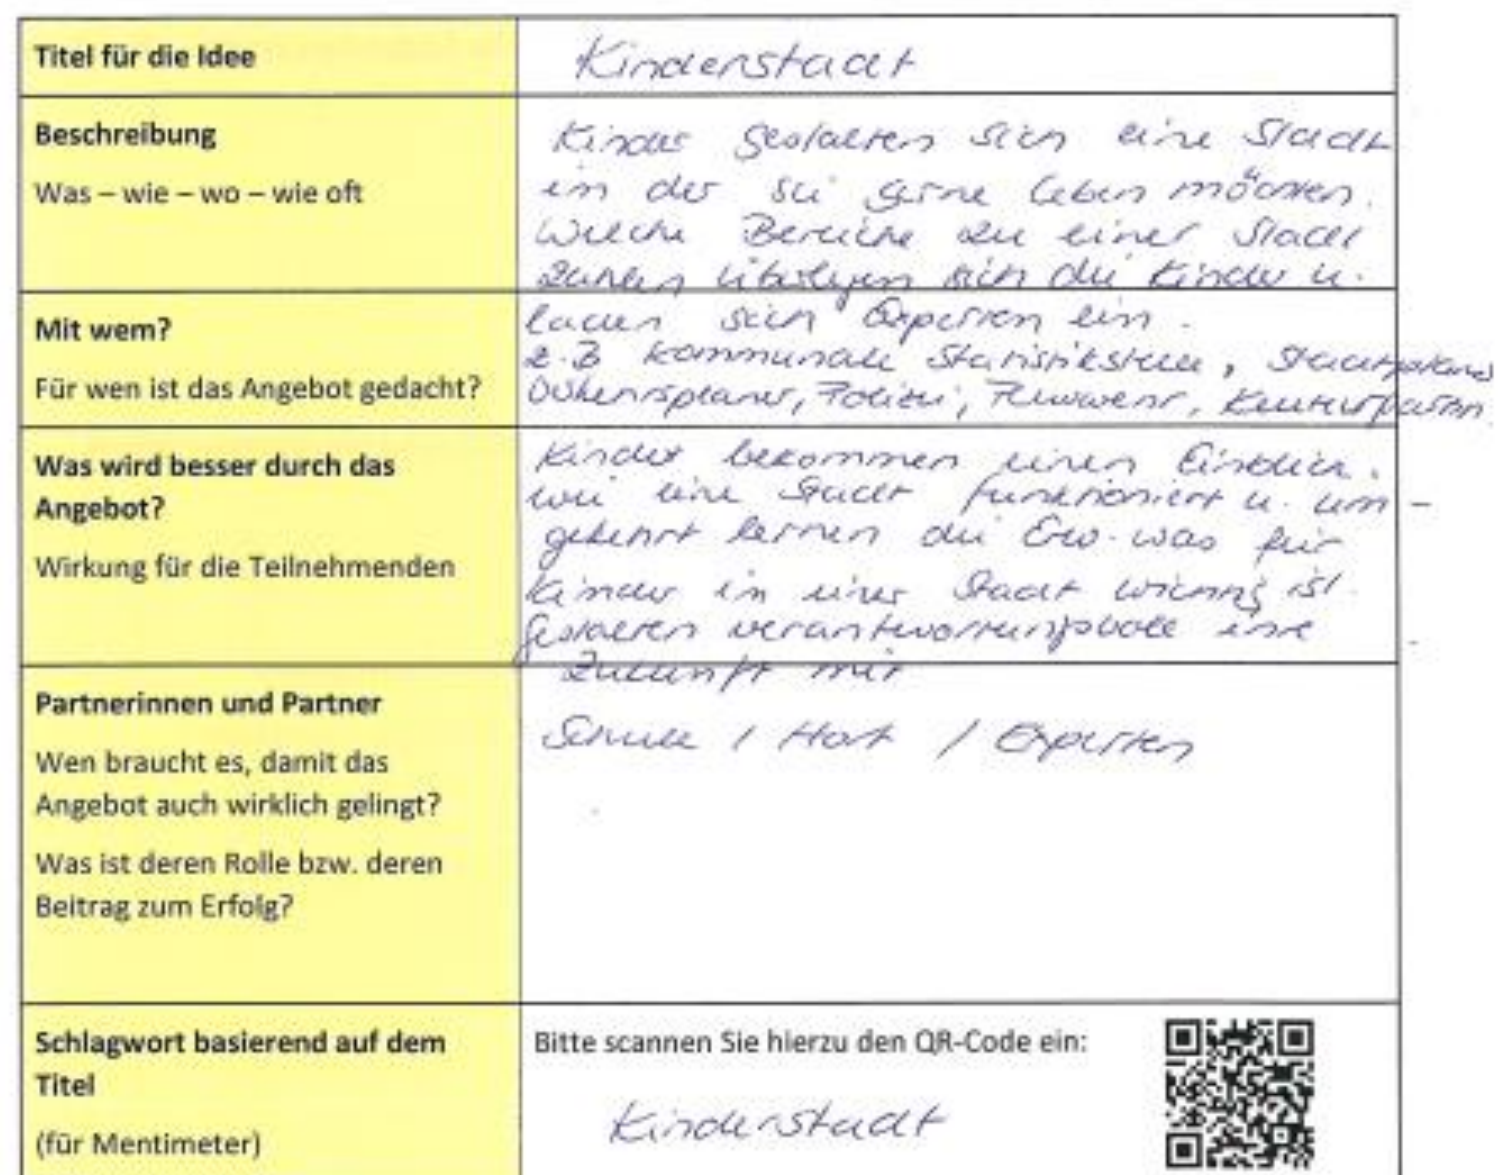 Titel für die Idee
Kinderstadt
Beschreibung
Was – wie – wo – wie oft
Kinder gestalten sich eine Stadt
in der sie gerne leben möchten.
Welche Bereiche zu einer Stadt
zählen überlegen sich die Kinder u.
Mit wem?
Für wen ist das Angebot gedacht?
laden sich Experten ein.
z.B kommunale Statistikstelle, Stadtplaner
Polizei, Feuerwehr,
Was wird besser durch das
Angebot?
Wirkung für die Teilnehmenden
Kinder bekommen einen Einblick,
wie eine Stadt funktioniert u. um-
gekehrt lernen die Erw. was für
Kinder in einer Stadt wichtig ist.
Gestalten verantwortungsvoll ihre
Zukunft mit
Partnerinnen und Partner
Wen braucht es, damit das
Angebot auch wirklich gelingt?
Was ist deren Rolle bzw. deren
Beitrag zum Erfolg?
Schule / Hort / Experten
Schlagwort basierend auf dem
Titel
(für Mentimeter)
Bitte scannen Sie hierzu den QR-Code ein:
Kinderstadt